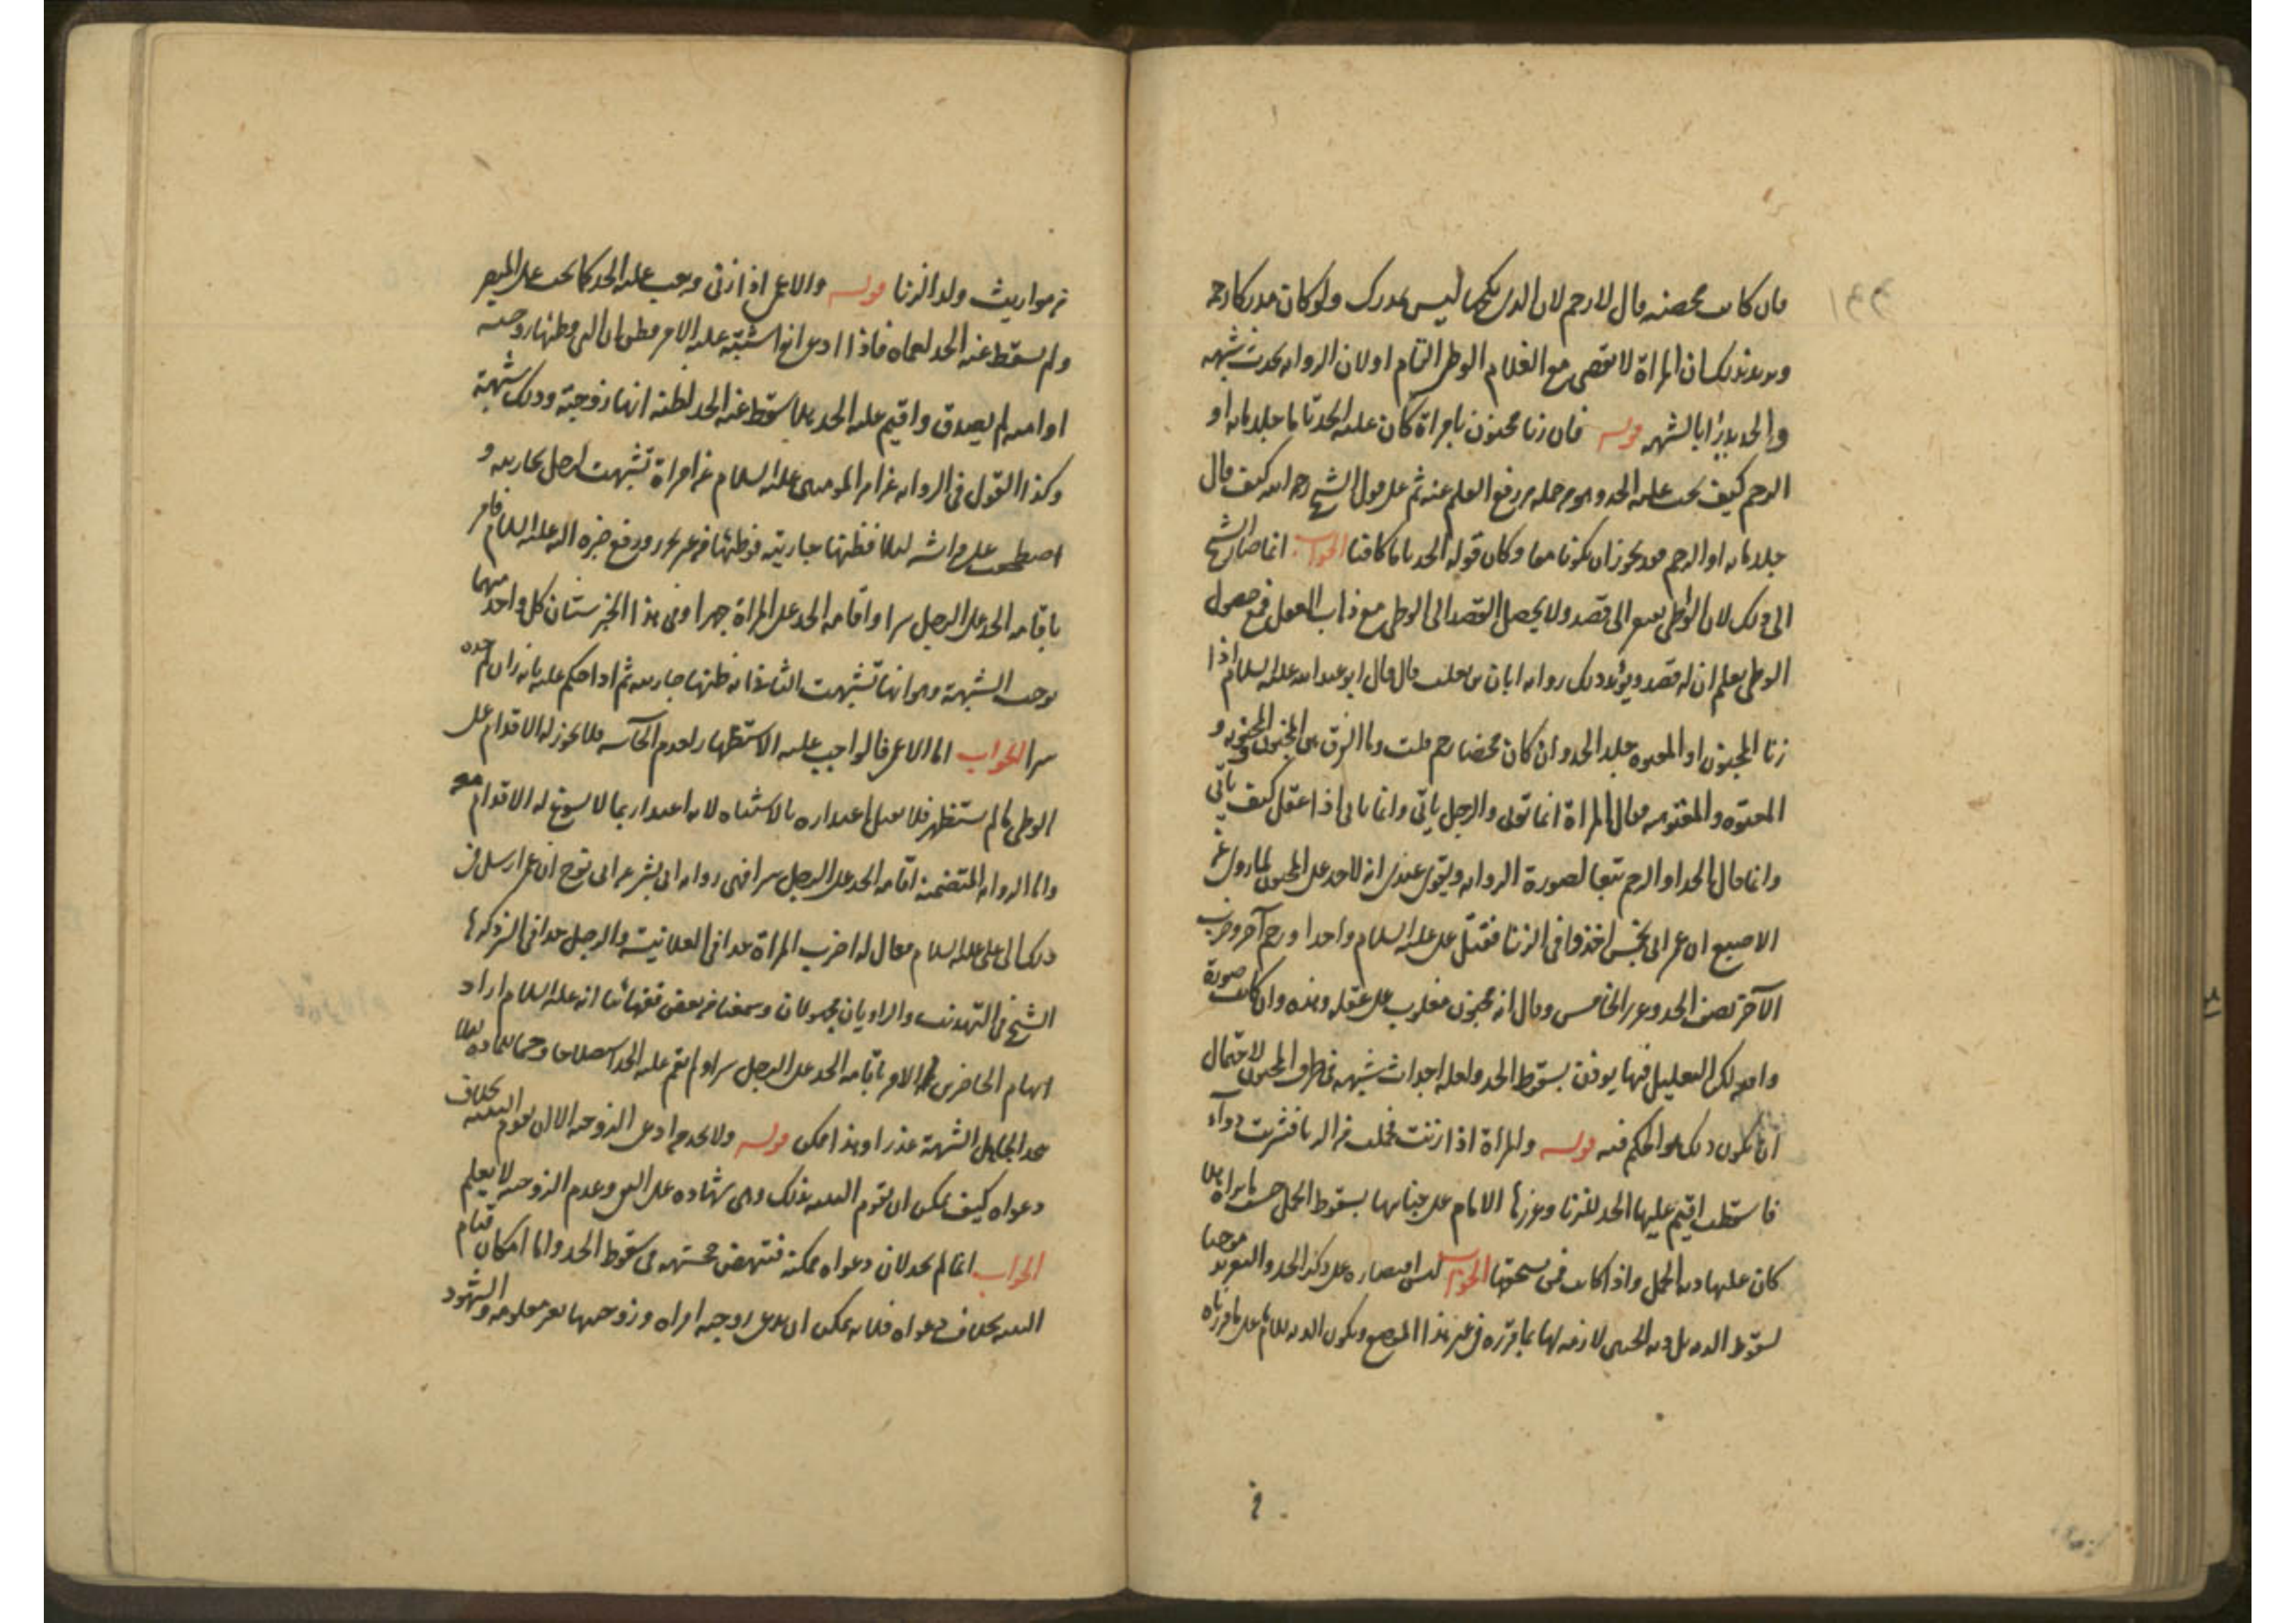 فان كانت محصنة قال لا ترجم لان الذي نكحها ليس بمدرك ولو كان مدركا رجمت
ويريد بذلك ان المراة لا تقضي مع الغلام الوطى التام او لان الرواية تحدث شبهة
والحد يدرأ بالشبهه قوله فان زنا مجنون بامراة كان عليه الحد تاما جلد مايه او
الرجم كيف يجب عليه الحد وهو من جملة من رفع القلم عنه ثم على قول الشيخ رحمه الله كيف قال
جلد مايه او الرجم فقد يجوز ان يكونا معا وكان قوله الحد تاما كافيا الجواب انما صار الشيخ
الى ذلك لان الوطى يفتقر الى قصد ولا يحصل القصد الى الوطى مع ذهاب العقل فمع حصول
الوطى يعلم ان له قصد ويؤيد ذلك رواية ابان بن تغلب قال قال ابو عبد الله عليه السلام اذا
زنا المجنون او المعتوه جلد الحد وان كان محصنا رجم قلت وما الفرق بين المجنون والمجنونه و
المعتوه والمعتوهه فقال المراة انما تؤتى والرجل ياتي وانما ياتي اذا عقل كيف ياتي
وانما قال الحد او الرجم تبعا لصورة الرواية ويقوى عندي انه لا حد على المجنون لما روى عن
الاصبغ ان عمر اتي بخمس اخذوا في الزنا فقتل علي عليه السلام واحدا ورجم آخر وضرب
الآخر نصف الحد وعزر الخامس وقال انه مجنون مغلوب على عقله وهذه وان كانت صورة
واقعه لكن التعليل فيها يوذن بسقوط الحد ولعله احداث شبهه في طرف المجنون لاحتمال
ان يكون ذلك هو الحكم فيه قوله والمراة اذا زنت فحملت من الزنا فشربت دوآء
فاسقطت اقيم عليها الحد للزنا وعزرها الامام على جنايتها بسقوط الحمل حسب ما يراه هلا
كان عليها دية الحمل واذا كانت فمن يستحقها الجواب ليس اقتصاره على ذكر الحد والتعزير موجبا
لسقوط الدية بل دية الجنين لازمه لها بما قرره في غير هذا الموضع ويكون الدية للامام على ما قررناه
في
في مواريث ولد الزنا قوله والاعمى اذا زنى وجب عليه الحد كما يجب على البصير
ولم يسقط عنه الحد لعماه فاذا ادعى انه اشتبه عليه الامر فظن ان التي وطئها زوجته
او امته لم يصدق واقيم عليه الحد هلا سقط عنه الحد لظنه انها زوجته وذلك شبهة
وكذا القول في الرواية عن امير المومنين عليه السلام عن امراة تشبهت لرجل بجاريته و
اضطجعت على فراشه ليلا فظنها جاريته فوطئها من غير تحرز ورفع خبره اليه عليه السلام فامر
باقامة الحد على الرجل سرا واقامة الحد على المراة جهرا وفي هذا الخبر ستان كل واحد منهما
توجب الشبهة وهو انها تشبهت الثاني انه ظنها جاريته ثم اذا حكم عليه بانه زان لم حده
سرا الجواب اما الاعمى فالواجب عليه الاستظهار لعدم الحآسه فلا يجوز له الاقدام على
الوطى ما لم يستظهر فلا يقبل اعتذاره بالاشتباه لانه اعتذار بما لا يسوغ له الاقدام معه
واما الرواية المتضمنة اقامة الحد على الرجل سرا فهي رواية ابي بشر عن ابي روح ان عمر ارسل في
ذلك الى علي عليه السلام فقال له اضرب المراة حدا في العلانية والرجل حدا في السر ذكرها
الشيخ في التهذيب والراويان مجهولان وسمعنا من بعض فقهائنا انه عليه السلام اراد
ايهام الحاضرين الامر باقامة الحد على الرجل سرا ولم يقم عليه الحد استصلاحا وحسما للماده لئلا
يتخذ الجاهل الشبهة عذرا وهذا ممكن قوله ولا يحد من ادعى الزوجية الا ان تقوم البينه بخلاف
دعواه كيف يمكن ان تقوم البينه بذلك وهي شهادة على النفي وعدم الزوجية لا يعلم
الجواب انما لم يحد لان دعواه ممكنة فتنهض شبهة في سقوط الحد واما امكان قيام
البينه بخلاف دعواه فلانه يمكن ان يدعي زوجية امراة وزوجها معلومه والشهود